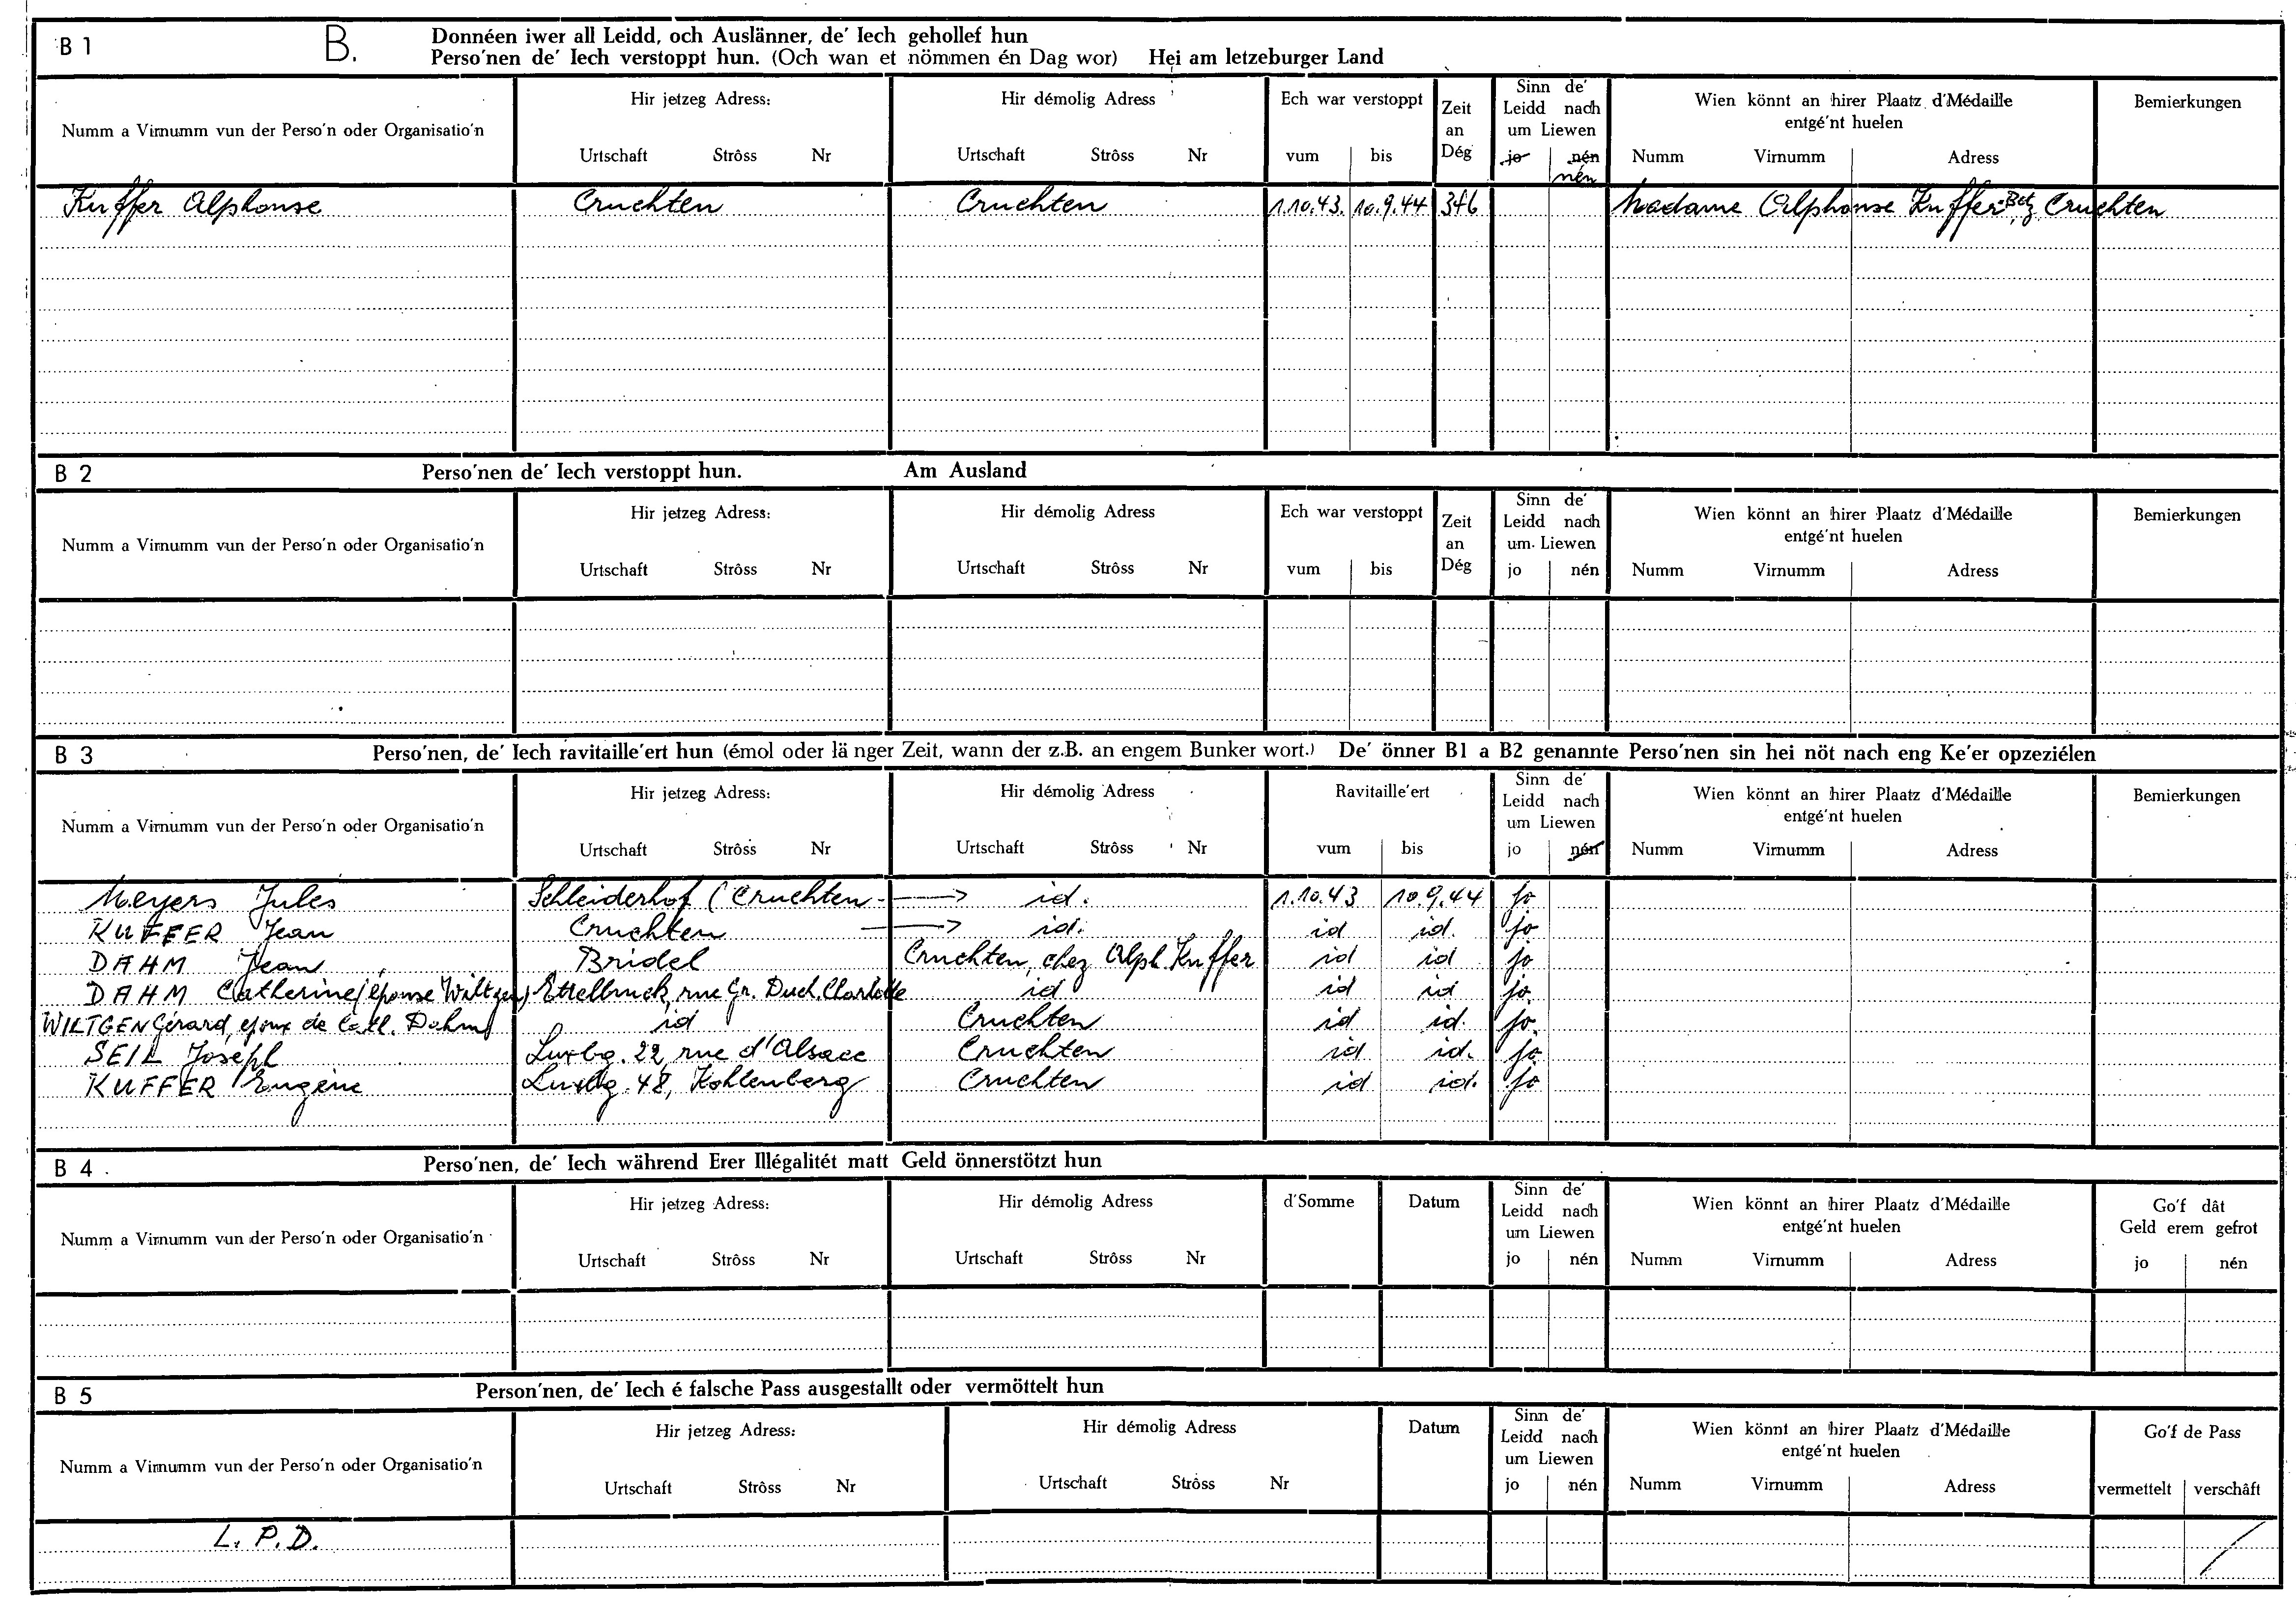 B 1 B. Donnéen iwer all Leidd, och Auslänner, de' Iech gehollef hun
Perso'nen de' Iech verstoppt hun. (Och wan et nömmen én Dag wor) Hei am letzeburger Land
Numm a Virnumm vun der Perso'n oder Organisatio'n
Hir jetzeg Adress:
Urtschaft Strôss Nr
Hir démolig Adress
Urtschaft Strôss Nr
Ech war verstoppt
vum bis
Zeit
an
Dég
Sinn de'
Leidd nach
um Liewen
jo nén
nén
Wien könnt an hirer Plaatz d'Médaille
entgé'nt huelen
Numm Virnumm Adress
Bemierkungen
Kuffer Alphonse Cruchten Cruchten 1.10.43. 10.9.44 346 Madame Alphonse Kuffer-Betz, Cruchten
B 2 Perso'nen de' Iech verstoppt hun. Am Ausland
Numm a Virnumm vun der Perso'n oder Organisatio'n
Hir jetzeg Adress:
Urtschaft Strôss Nr
Hir démolig Adress
Urtschaft Strôss Nr
Ech war verstoppt
vum bis
Zeit
an
Dég
Sinn de'
Leidd nach
um Liewen
jo nén
Wien könnt an hirer Plaatz d'Médaille
entgé'nt huelen
Numm Virnumm Adress
Bemierkungen
B 3 Perso'nen, de' Iech ravitaille'ert hun (émol oder länger Zeit, wann der z.B. an engem Bunker wort.) De' önner B1 a B2 genannte Perso'nen sin hei nöt nach eng Ke'er opzeziélen
Numm a Virnumm vun der Perso'n oder Organisatio'n
Hir jetzeg Adress:
Urtschaft Strôss Nr
Hir démolig Adress
Urtschaft Strôss Nr
Ravitaille'ert
vum bis
Sinn de'
Leidd nach
um Liewen
jo nén
Wien könnt an hirer Plaatz d'Médaille
entgé'nt huelen
Numm Virnumm Adress
Bemierkungen
Meyers Jules Schleiderhof (Cruchten → id. 1.10.43 10.9.44 jo
KUFFER Jean Cruchten → id. id id. jo
DAHM Jean Bridel Cruchten, chez Alph. Kuffer id id jo
DAHM Catherine (épouse Wiltgen) Ettelbruck, rue Gr. Duch. Charlotte id id id jo
WILTGEN Gérard, époux de Cath. Dahm id Cruchten id id. jo
SEIL Joseph Luxbg. 22, rue d'Alsace Cruchten id id. jo
KUFFER Eugène Luxbg. 48, Kohlenberg Cruchten id id. jo
B 4 Perso'nen, de' Iech während Erer Illégalitét matt Geld önnerstötzt hun
Numm a Virnumm vun der Perso'n oder Organisatio'n
Hir jetzeg Adress:
Urtschaft Strôss Nr
Hir démolig Adress
Urtschaft Strôss Nr
d'Somme
Datum
Sinn de'
Leidd nach
um Liewen
jo nén
Wien könnt an hirer Plaatz d'Médaille
entgé'nt huelen
Numm Virnumm Adress
Go'f dât
Geld erem gefrot
jo nén
B 5 Person'nen, de' Iech é falsche Pass ausgestallt oder vermöttelt hun
Numm a Virnumm vun der Perso'n oder Organisatio'n
Hir jetzeg Adress:
Urtschaft Strôss Nr
Hir démolig Adress
Urtschaft Strôss Nr
Datum
Sinn de'
Leidd nach
um Liewen
jo nén
Wien könnt an hirer Plaatz d'Médaille
entgé'nt huelen
Numm Virnumm Adress
Go'f de Pass
vermettelt verschâft
L. P. D. /